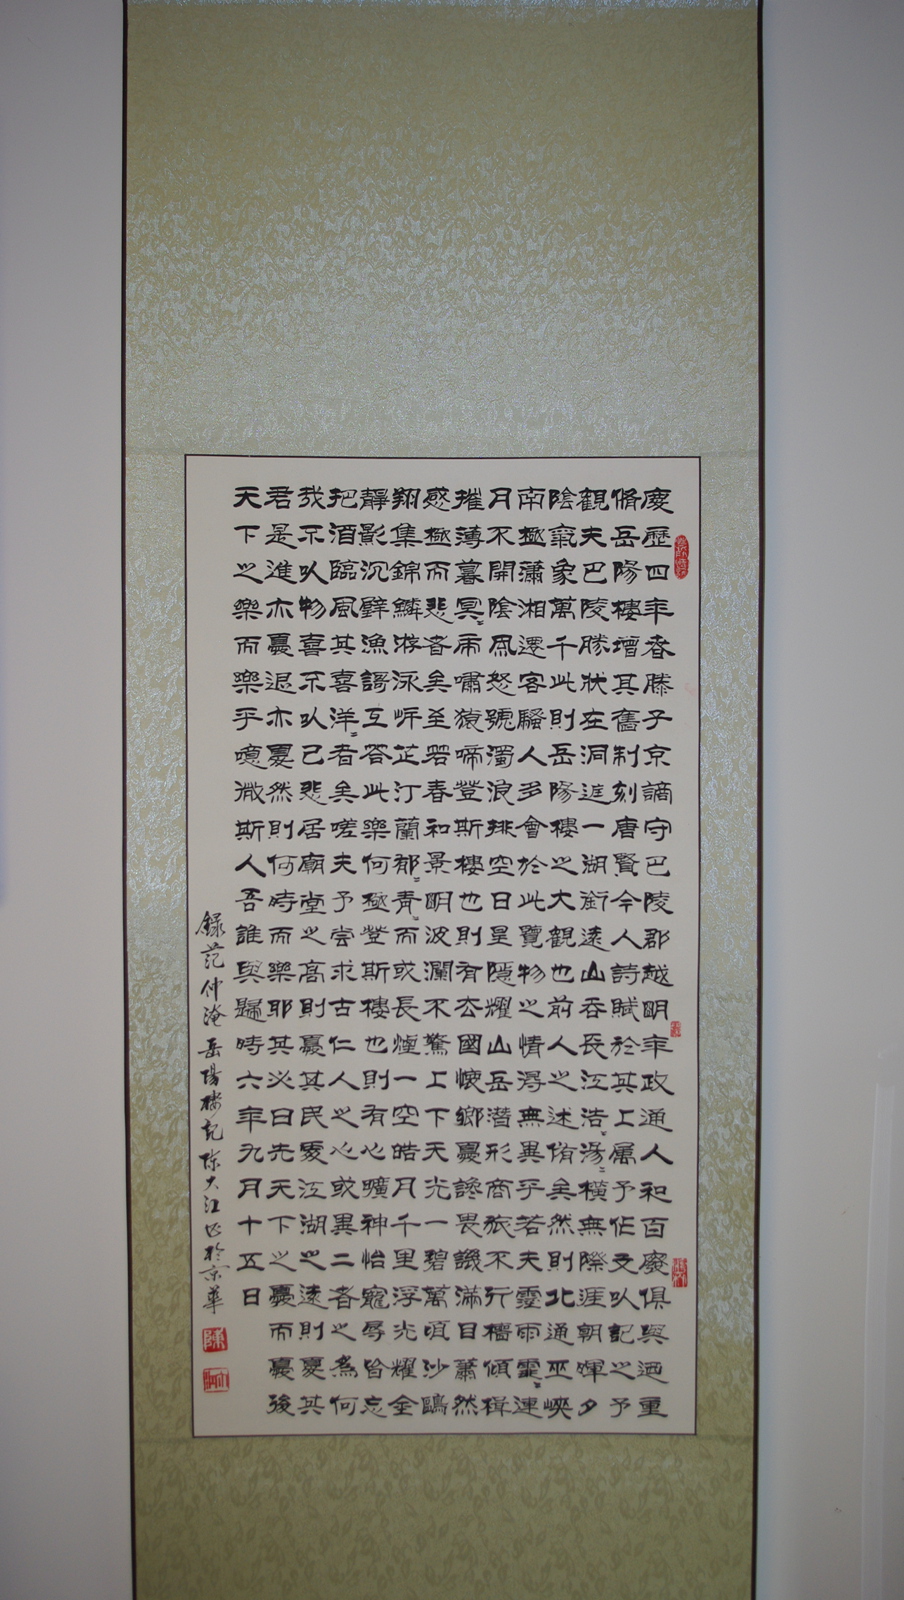 慶歷四年春滕子京謫守巴陵郡越明年政通人和百廢俱興迺重
脩岳陽樓增其舊制刻唐賢今人詩賦於其上屬予作文以記之予
觀夫巴陵勝狀在洞庭一湖銜遠山吞長江浩〻湯〻橫無際涯朝暉夕
陰氣象萬千此則岳陽樓之大觀也前人之述備矣然則北通巫峽
南極瀟湘遷客騷人多會於此覽物之情得無異乎若夫霪雨霏〻連
月不開陰風怒號濁浪排空日星隱耀山岳潛形商旅不行檣傾楫
摧薄暮冥〻虎嘯猿啼登斯樓也則有去國懷鄉憂讒畏譏滿目蕭然
感極而悲者矣至若春和景明波瀾不驚上下天光一碧萬頃沙鷗
翔集錦鱗游泳岸芷汀蘭郁〻青〻而或長煙一空皓月千里浮光耀金
靜影沉璧漁謌互答此樂何極登斯樓也則有心曠神怡寵辱皆忘
把酒臨風其喜洋〻者矣嗟夫予嘗求古仁人之心或異二者之為何
哉不以物喜不以己悲居廟堂之高則憂其民處江湖之遠則憂其
君是進亦憂退亦憂然則何時而樂耶其必曰先天下之憂而憂後
天下之樂而樂乎噫微斯人吾誰與歸時六年九月十五日
錄范仲淹岳陽樓記陳大江書於京華